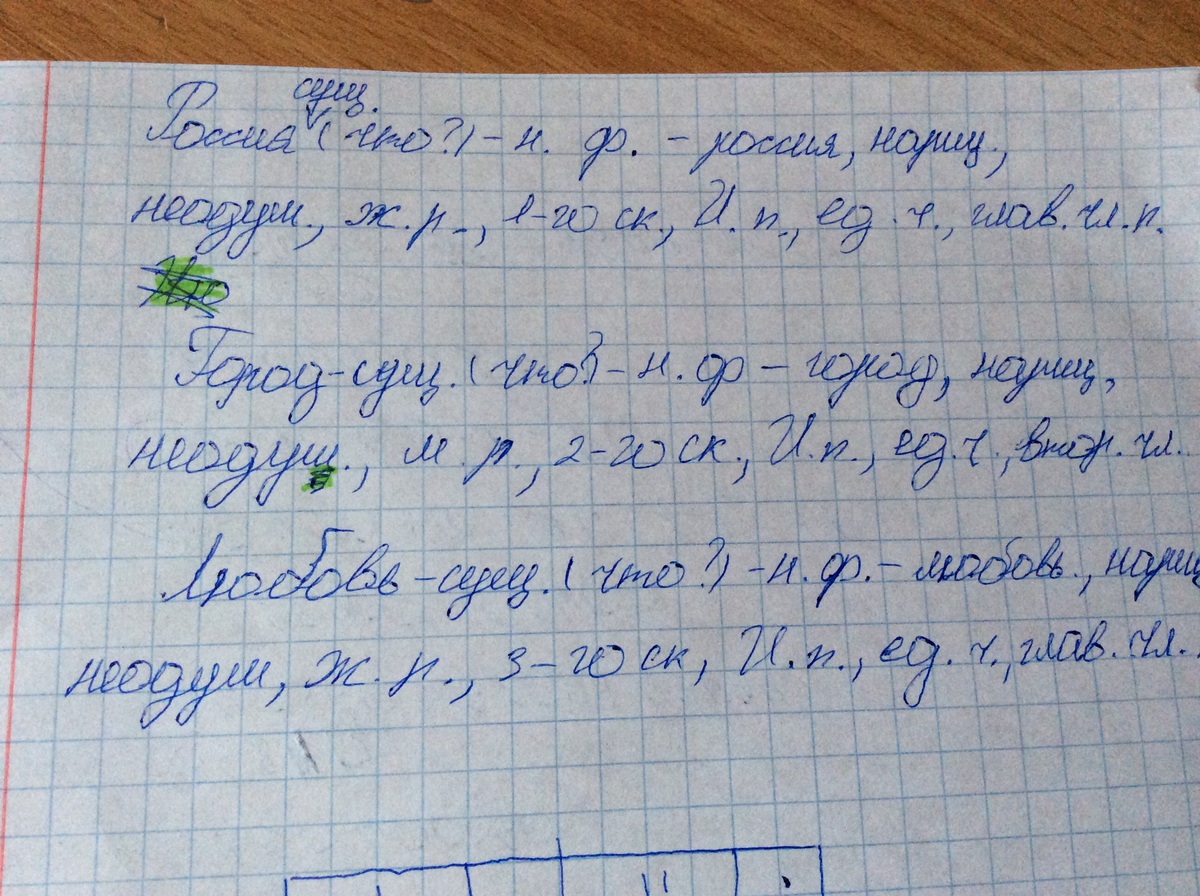 сущ.
Россия (что?) - н. ф. - россия, нариц.,
неодуш., ж.р., 1-го ск., И.п., ед.ч., глав.чл.п.
Город-сущ. (что?) - н.ф - город, нариц,
неодуш., м.р., 2-го ск., И.п., ед.ч., втор. чл.
Любовь - сущ. (что?) - н.ф. - любовь., нариц
неодуш, ж.р., 3-го ск, И.п., ед.ч., глав.чл.